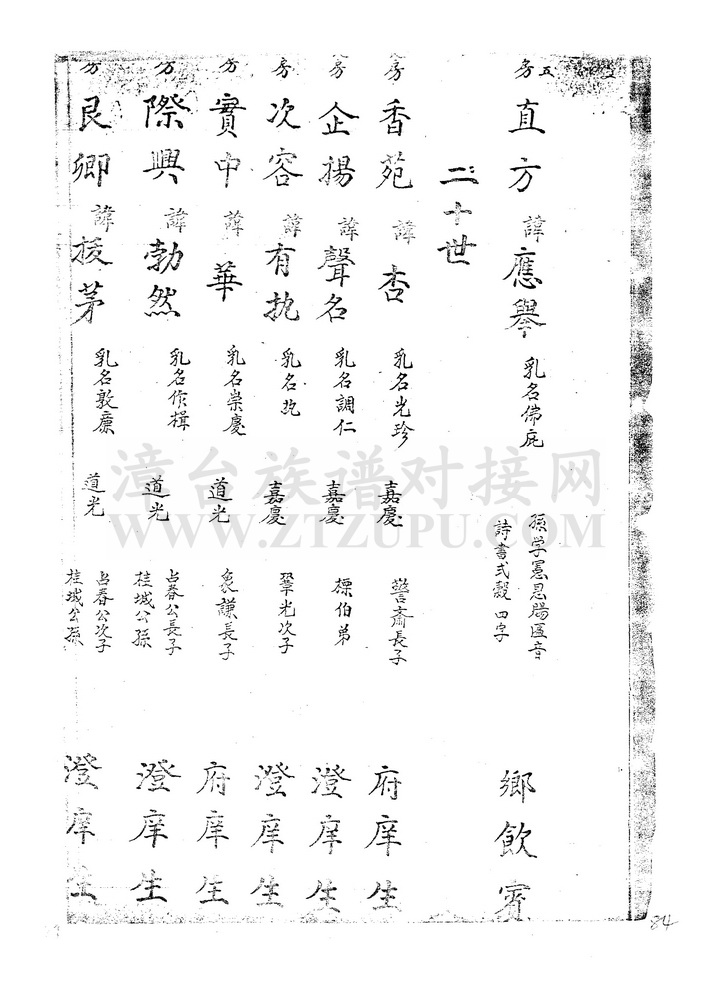 五房 直方 諱 應舉 乳名佛庇 孫学憲恩賜匾音 詩書式穀四字 鄉飲賓
二十世
房 香苑 諱 杏 乳名光珍 嘉慶 警齋長子 府庠生
房 企揚 諱 聲名 乳名調仁 嘉慶 標伯弟 澄庠生
房 次容 諱 有執 乳名 嘉慶 鞏光次子 澄庠生
房 實中 諱 華 乳名崇慶 道光 象謙長子 府庠生
房 際興 諱 勃然 乳名作楫 道光 占春公長子 桂城公孫 澄庠生
房 艮卿 諱 拔茅 乳名敦廉 道光 占春公次子 桂城公孫 澄庠生
漳台族谱对接网
WWW.ZTZUPU.COM
84